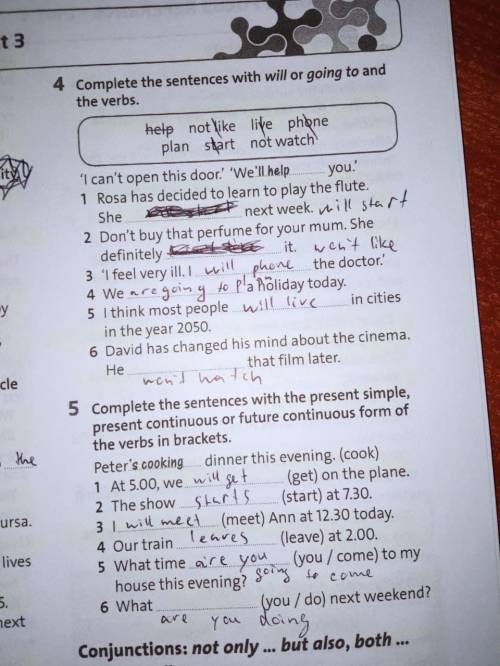 t 3
4 Complete the sentences with will or going to and
the verbs.
help not like live phone
plan start not watch
'I can't open this door.' 'We'll help you.'
1 Rosa has decided to learn to play the flute.
She next week. will start
2 Don't buy that perfume for your mum. She
definitely it. won't like
3 'I feel very ill. I will phone the doctor.'
4 We are going to plan a holiday today.
5 I think most people will live in cities
in the year 2050.
6 David has changed his mind about the cinema.
He that film later.
won't watch
cle
5 Complete the sentences with the present simple,
present continuous or future continuous form of
the verbs in brackets.
the
Peter's cooking dinner this evening. (cook)
1 At 5.00, we will get (get) on the plane.
2 The show starts (start) at 7.30.
ursa.
3 I will meet (meet) Ann at 12.30 today.
4 Our train leaves (leave) at 2.00.
lives
5 What time are you (you / come) to my
house this evening? going to come
5.
6 What (you / do) next weekend?
next
are you doing
Conjunctions: not only ... but also, both ...